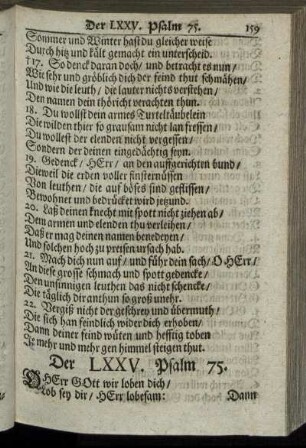 Der LXXV. Psalm 75. 159
Sommer und Winter hast du gleicher weise
Durch hitz und kält gemacht ein unterscheid.
†17. So denck daran doch/ und betracht es nun/
Wie sehr und gröblich dich der feind thut schmähen/
Und wie die leuth/ die lauter nichts verstehen/
Den namen dein thöricht verachten thun.
18. Du wollst dein armes Turteltäubelein
Die wilden thier so grausam nicht lan fressen/
Du wollest der elenden nicht vergessen/
Sondern der deinen eingedächtig seyn.
19. Gedenck/ HErr/ an den auffgerichten bund/
Dieweil die erden voller finsternüssen
Von leuthen/ die auf böses sind geflissen/
Bewohnet und bedrücket wird jetzund.
20. Laß deinen knecht mit spott nicht ziehen ab/
Dem armen und elenden thu verleihen/
Daß er mag deinen namen benedeyen/
Und solchen hoch zu preisen ursach hab.
21. Mach dich nun auf/ und führ dein sach/ O HErr/
An diese grosse schmach und spott gedencke/
Den unsinnigen leuthen das nicht schencke/
Die täglich dir anthun so groß unehr.
22. Vergiß nicht der geschrey und übermuth/
Die sich han feindlich wider dich erhoben/
Dann deiner feind wüten und hefftig toben
Je mehr und mehr gen himmel steigen thut.
Der LXXV. Psalm 75.
O HErr GOtt wir loben dich/
Lob sey dir/ HErr lobesam: Dann